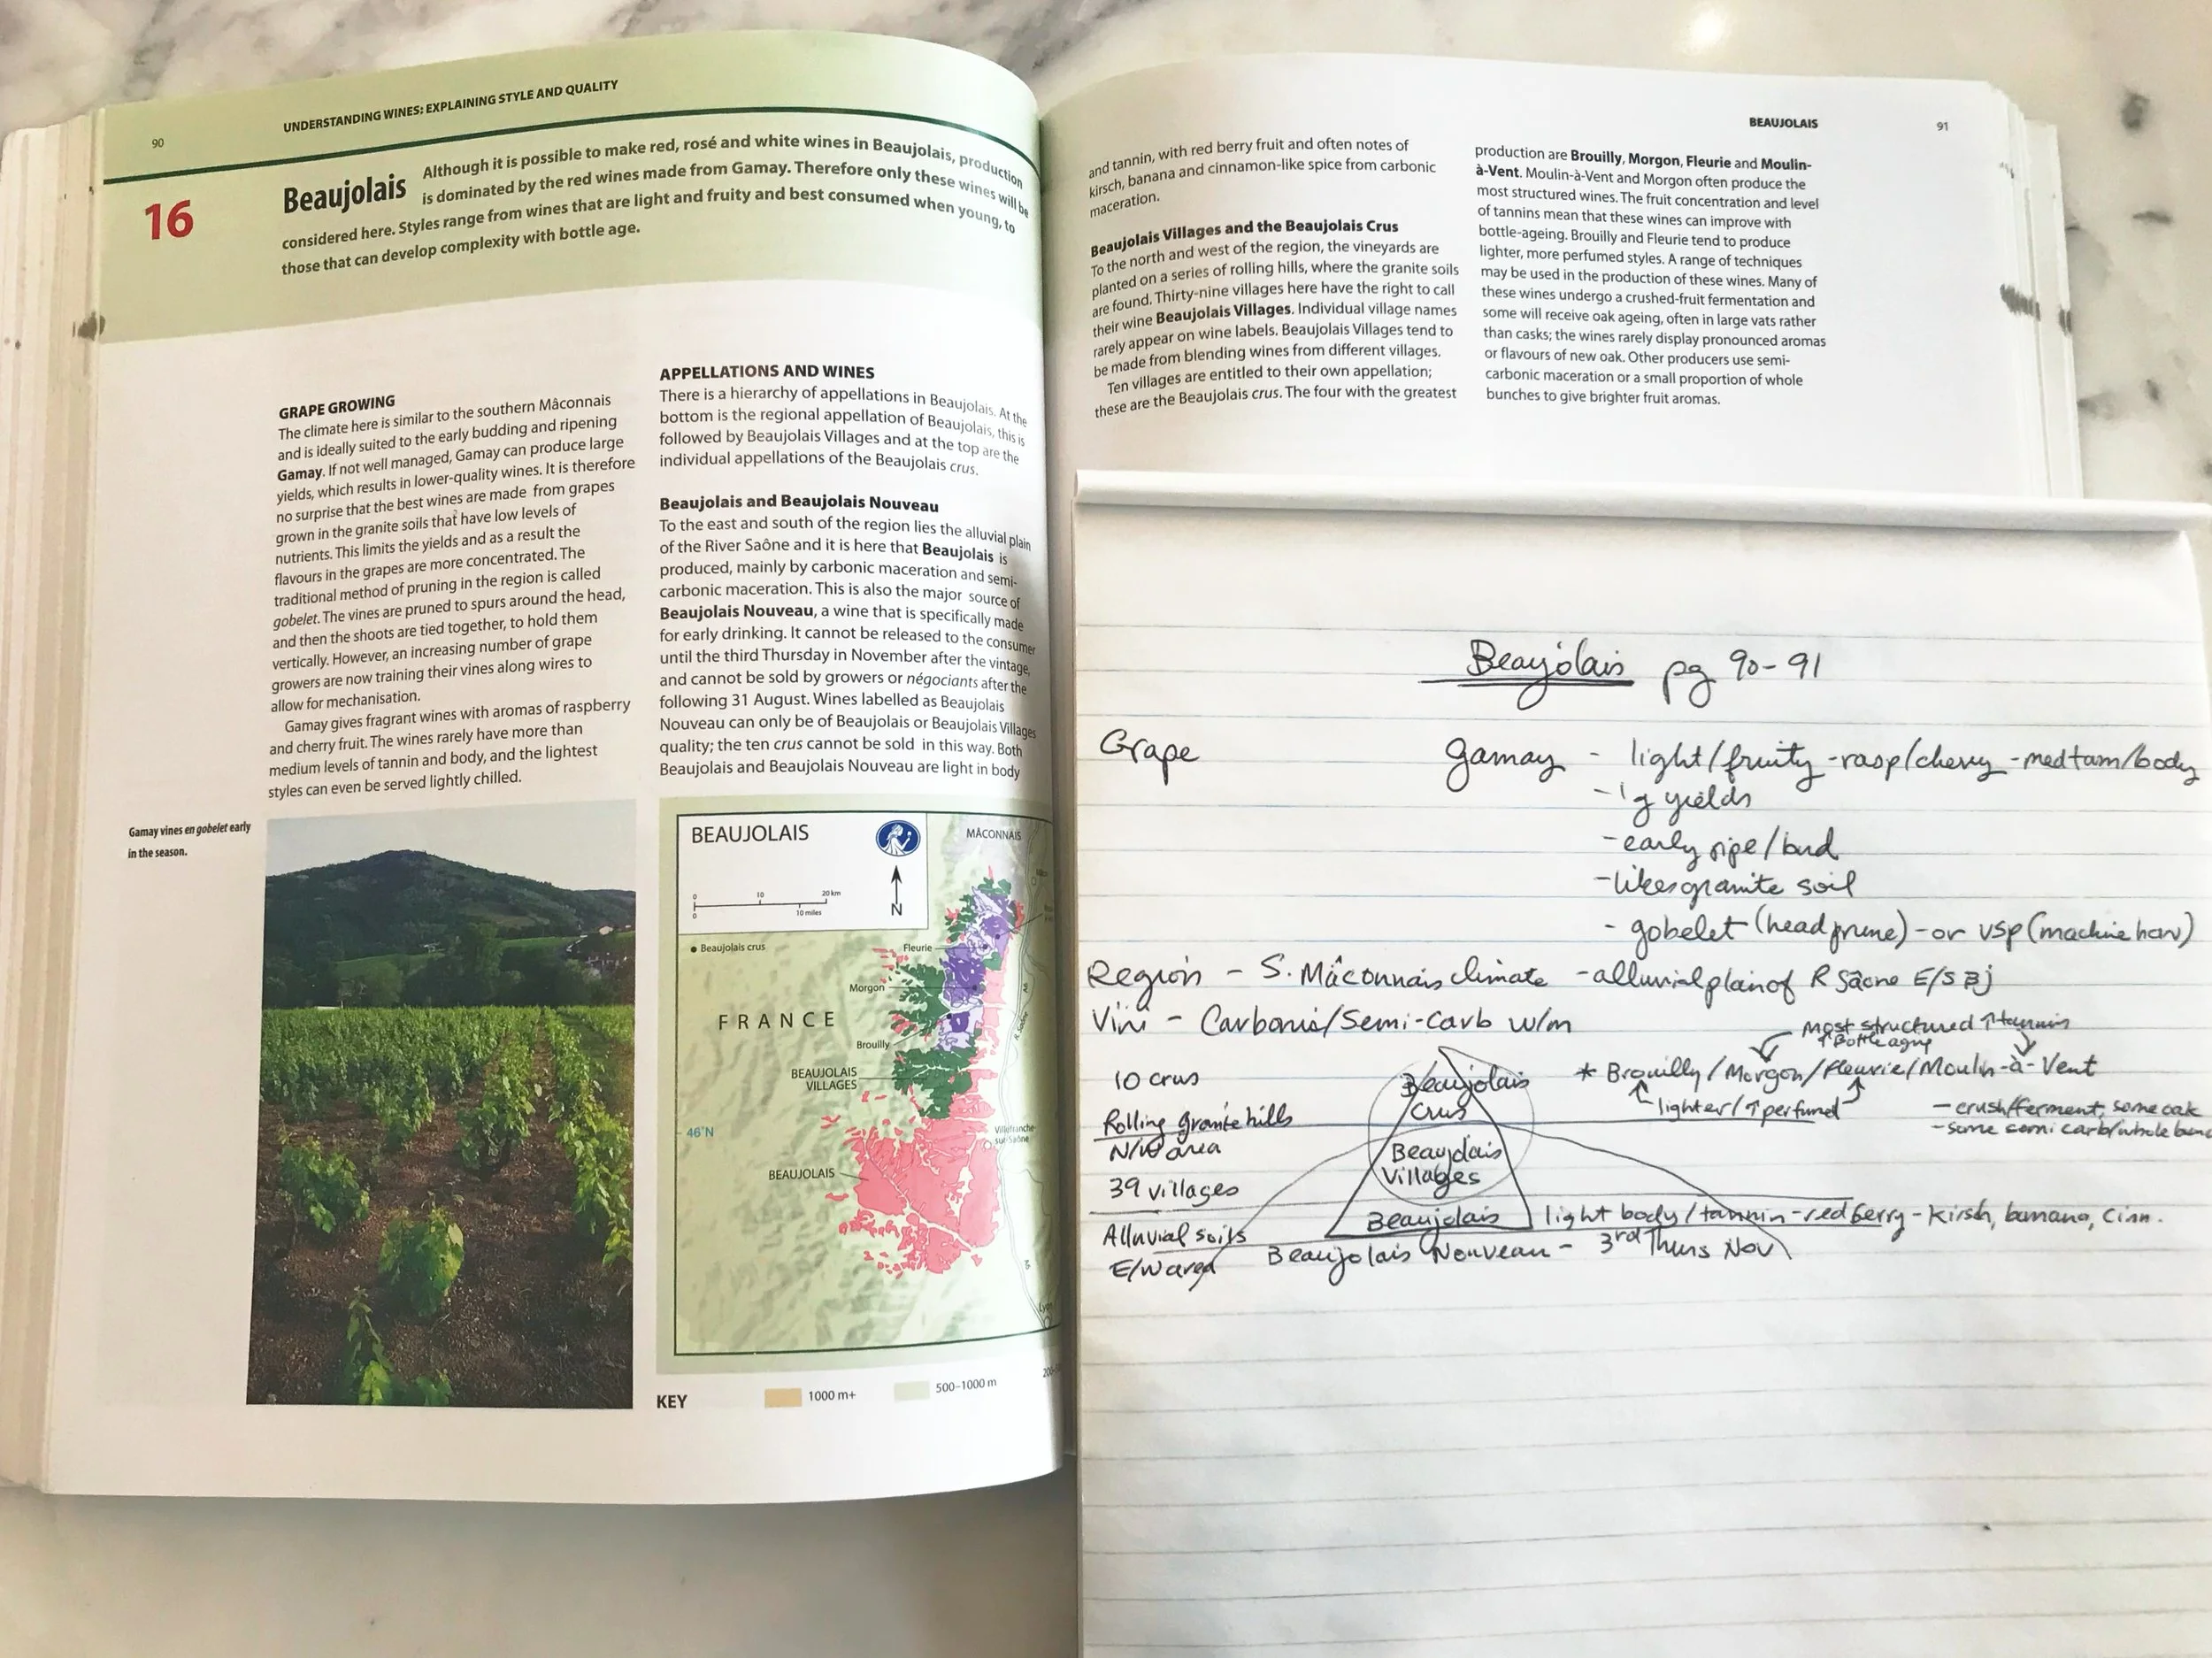 90
UNDERSTANDING WINES: EXPLAINING STYLE AND QUALITY
16
Beaujolais
Although it is possible to make red, rosé and white wines in Beaujolais, production
is dominated by the red wines made from Gamay. Therefore only these wines will be
considered here. Styles range from wines that are light and fruity and best consumed when young, to
those that can develop complexity with bottle age.
GRAPE GROWING
The climate here is similar to the southern Mâconnais
and is ideally suited to the early budding and ripening
Gamay. If not well managed, Gamay can produce large
yields, which results in lower-quality wines. It is therefore
no surprise that the best wines are made from grapes
grown in the granite soils that have low levels of
nutrients. This limits the yields and as a result the
flavours in the grapes are more concentrated. The
traditional method of pruning in the region is called
gobelet. The vines are pruned to spurs around the head,
and then the shoots are tied together, to hold them
vertically. However, an increasing number of grape
growers are now training their vines along wires to
allow for mechanisation.
Gamay gives fragrant wines with aromas of raspberry
and cherry fruit. The wines rarely have more than
medium levels of tannin and body, and the lightest
styles can even be served lightly chilled.
Gamay vines en gobelet early
in the season.
APPELLATIONS AND WINES
There is a hierarchy of appellations in Beaujolais. At the
bottom is the regional appellation of Beaujolais, this is
followed by Beaujolais Villages and at the top are the
individual appellations of the Beaujolais crus.
Beaujolais and Beaujolais Nouveau
To the east and south of the region lies the alluvial plain
of the River Saône and it is here that Beaujolais is
produced, mainly by carbonic maceration and semi-
carbonic maceration. This is also the major source of
Beaujolais Nouveau, a wine that is specifically made
for early drinking. It cannot be released to the consumer
until the third Thursday in November after the vintage,
and cannot be sold by growers or négociants after the
following 31 August. Wines labelled as Beaujolais
Nouveau can only be of Beaujolais or Beaujolais Villages
quality; the ten crus cannot be sold in this way. Both
Beaujolais and Beaujolais Nouveau are light in body
BEAUJOLAIS
MÂCONNAIS
0 10 20 km
0 10 miles
N
Beaujolais crus
Fleurie
Morgon
FRANCE
R. Saône
Brouilly
BEAUJOLAIS
VILLAGES
46°N
Villefranche-
sur-Saône
BEAUJOLAIS
Lyon
KEY
1000 m+
500–1000 m
BEAUJOLAIS
91
and tannin, with red berry fruit and often notes of
kirsch, banana and cinnamon-like spice from carbonic
maceration.
Beaujolais Villages and the Beaujolais Crus
To the north and west of the region, the vineyards are
planted on a series of rolling hills, where the granite soils
are found. Thirty-nine villages here have the right to call
their wine Beaujolais Villages. Individual village names
rarely appear on wine labels. Beaujolais Villages tend to
be made from blending wines from different villages.
Ten villages are entitled to their own appellation;
these are the Beaujolais crus. The four with the greatest
production are Brouilly, Morgon, Fleurie and Moulin-
à-Vent. Moulin-à-Vent and Morgon often produce the
most structured wines. The fruit concentration and level
of tannins mean that these wines can improve with
bottle-ageing. Brouilly and Fleurie tend to produce
lighter, more perfumed styles. A range of techniques
may be used in the production of these wines. Many of
these wines undergo a crushed-fruit fermentation and
some will receive oak ageing, often in large vats rather
than casks; the wines rarely display pronounced aromas
or flavours of new oak. Other producers use semi-
carbonic maceration or a small proportion of whole
bunches to give brighter fruit aromas.
Beaujolais pg 90-91
Grape Gamay - light/fruity - rasp/cherry - med tann/body
- lg yields
- early ripe/bud
- likes granite soil
- gobelet (head prune) - or VSP (machine harv)
Region - S. Mâconnais climate - alluvial plain of R Sâone E/S Bj
Vini - Carbonic/Semi-Carb w/m
Most structured ↑tannin
↑Bottle aging
10 crus
Beaujolais
Crus
* Brouilly/Morgon/Fleurie/Moulin-à-Vent
lighter/↑perfumed
- crush/ferment, some oak
- some semi carb/whole bunc
Rolling granite hills
N/W area
39 villages
Beaujolais
Villages
Alluvial soils
E/W area
Beaujolais
light body/tannin - red berry - kirsh, banana, cinn.
Beaujolais Nouveau - 3rd Thurs Nov